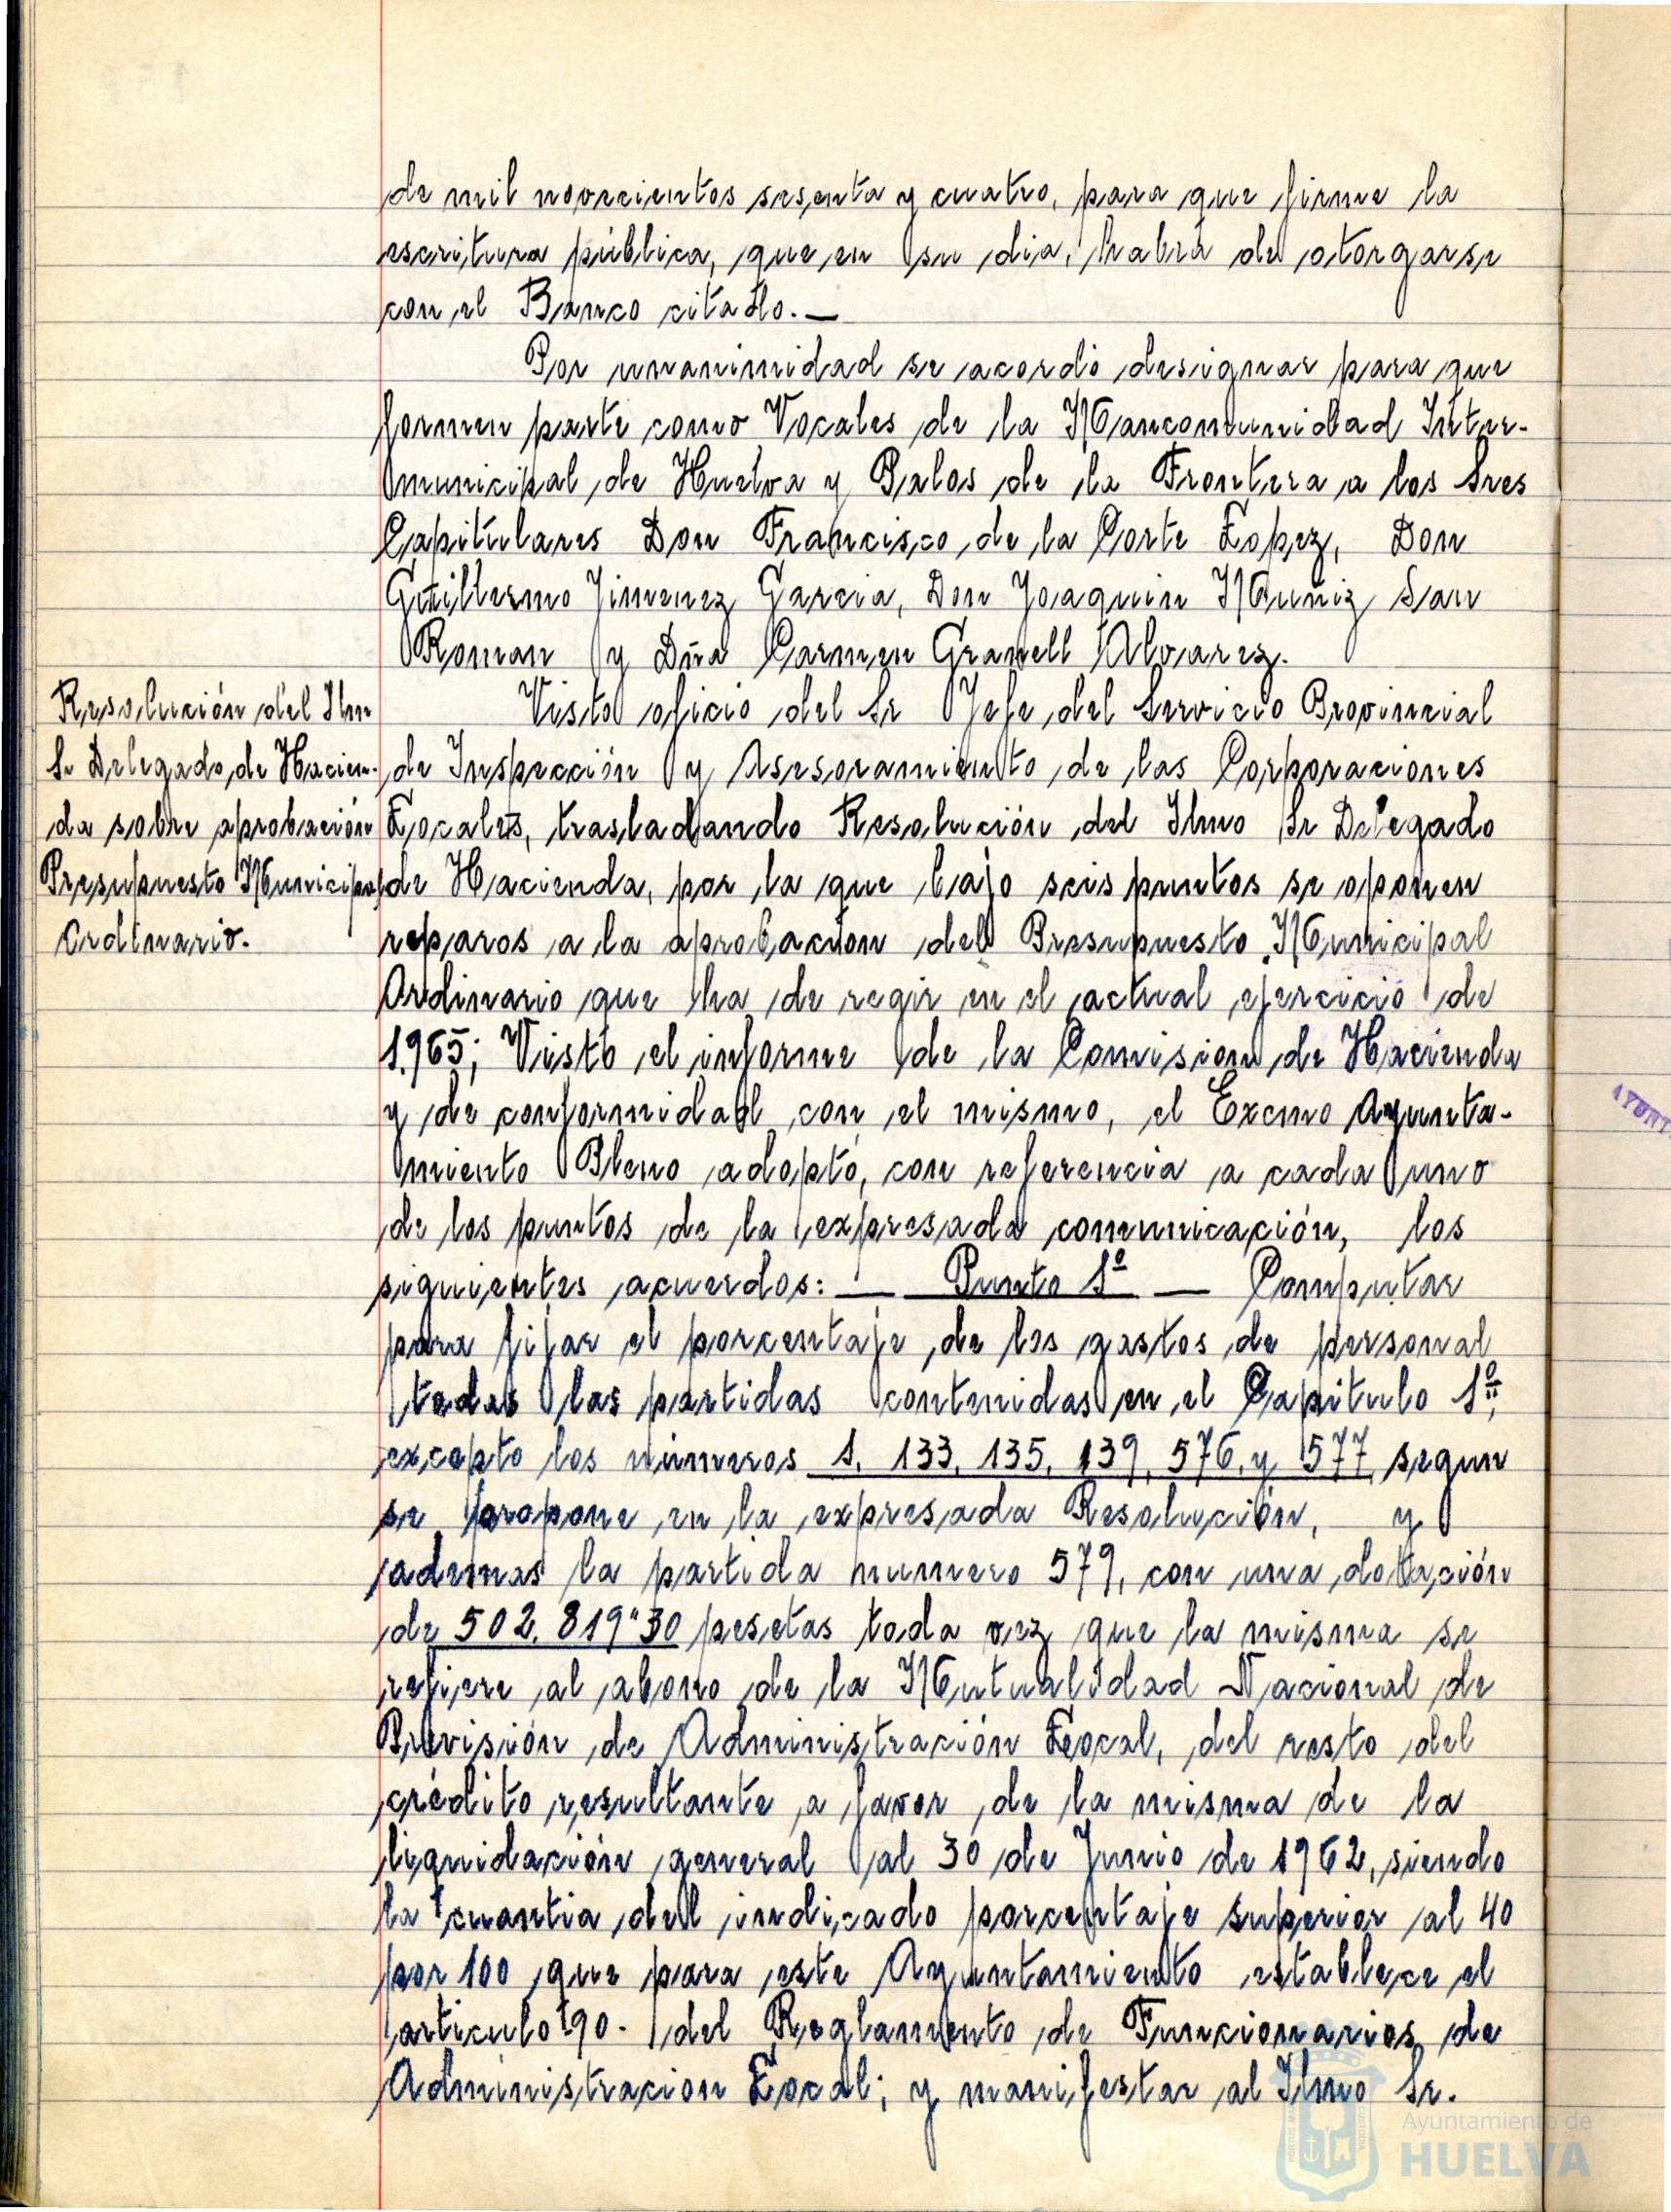 de mil novecientos sesenta y cuatro, para que firme la
escritura pública, que en su dia, habrá de otorgarse
con el Banco citado. —
Por unanimidad se acordó designar para que
formen parte como Vocales de la Mancomunidad Inter-
municipal de Huelva y Palos de la Frontera a los Sres
Capitulares Don Francisco de la Corte Lopez, Don
Guillermo Jimenez Garcia, Don Joaquin Muñiz San
Roman y Dña Carmen Gravell Alvarez.
Resolución del Ilmo
Sr Delegado de Hacien-
da sobre aprobación
Presupuesto Municipal
Ordinario.
Visto oficio del Sr Jefe del Servicio Provincial
de Inspección y Asesoramiento de las Corporaciones
Locales, trasladando Resolución del Ilmo Sr Delegado
de Hacienda, por la que bajo seis puntos se oponen
reparos a la aprobacion del Presupuesto Municipal
Ordinario que ha de regir en el actual ejercicio de
1.965; Visto el informe de la Comision de Hacienda
y de conformidad con el mismo, el Excmo Ayunta-
miento Pleno adoptó, con referencia a cada uno
de los puntos de la expresada comunicación, los
siguientes acuerdos: — Punto 1º — Computar
para fijar el porcentaje de los gastos de personal
todas las partidas contenidas en el Capitulo 1º,
excepto los números 1, 133, 135, 139, 576, y 577 segun
se propone en la expresada Resolución, y
ademas la partida numero 579, con una dotación
de 502.819"30 pesetas toda vez que la misma se
refiere al abono de la Mutualidad Nacional de
Previsión de Administración Local, del resto del
crédito resultante a favor de la misma de la
liquidación general al 30 de Junio de 1962, siendo
la cuantia del indicado porcentaje superior al 40
por 100 que para este Ayuntamiento establece el
articulo 90. del Reglamento de Funcionarios de
Administracion Local; y manifestar al Ilmo Sr.
Ayuntamiento de
HUELVA